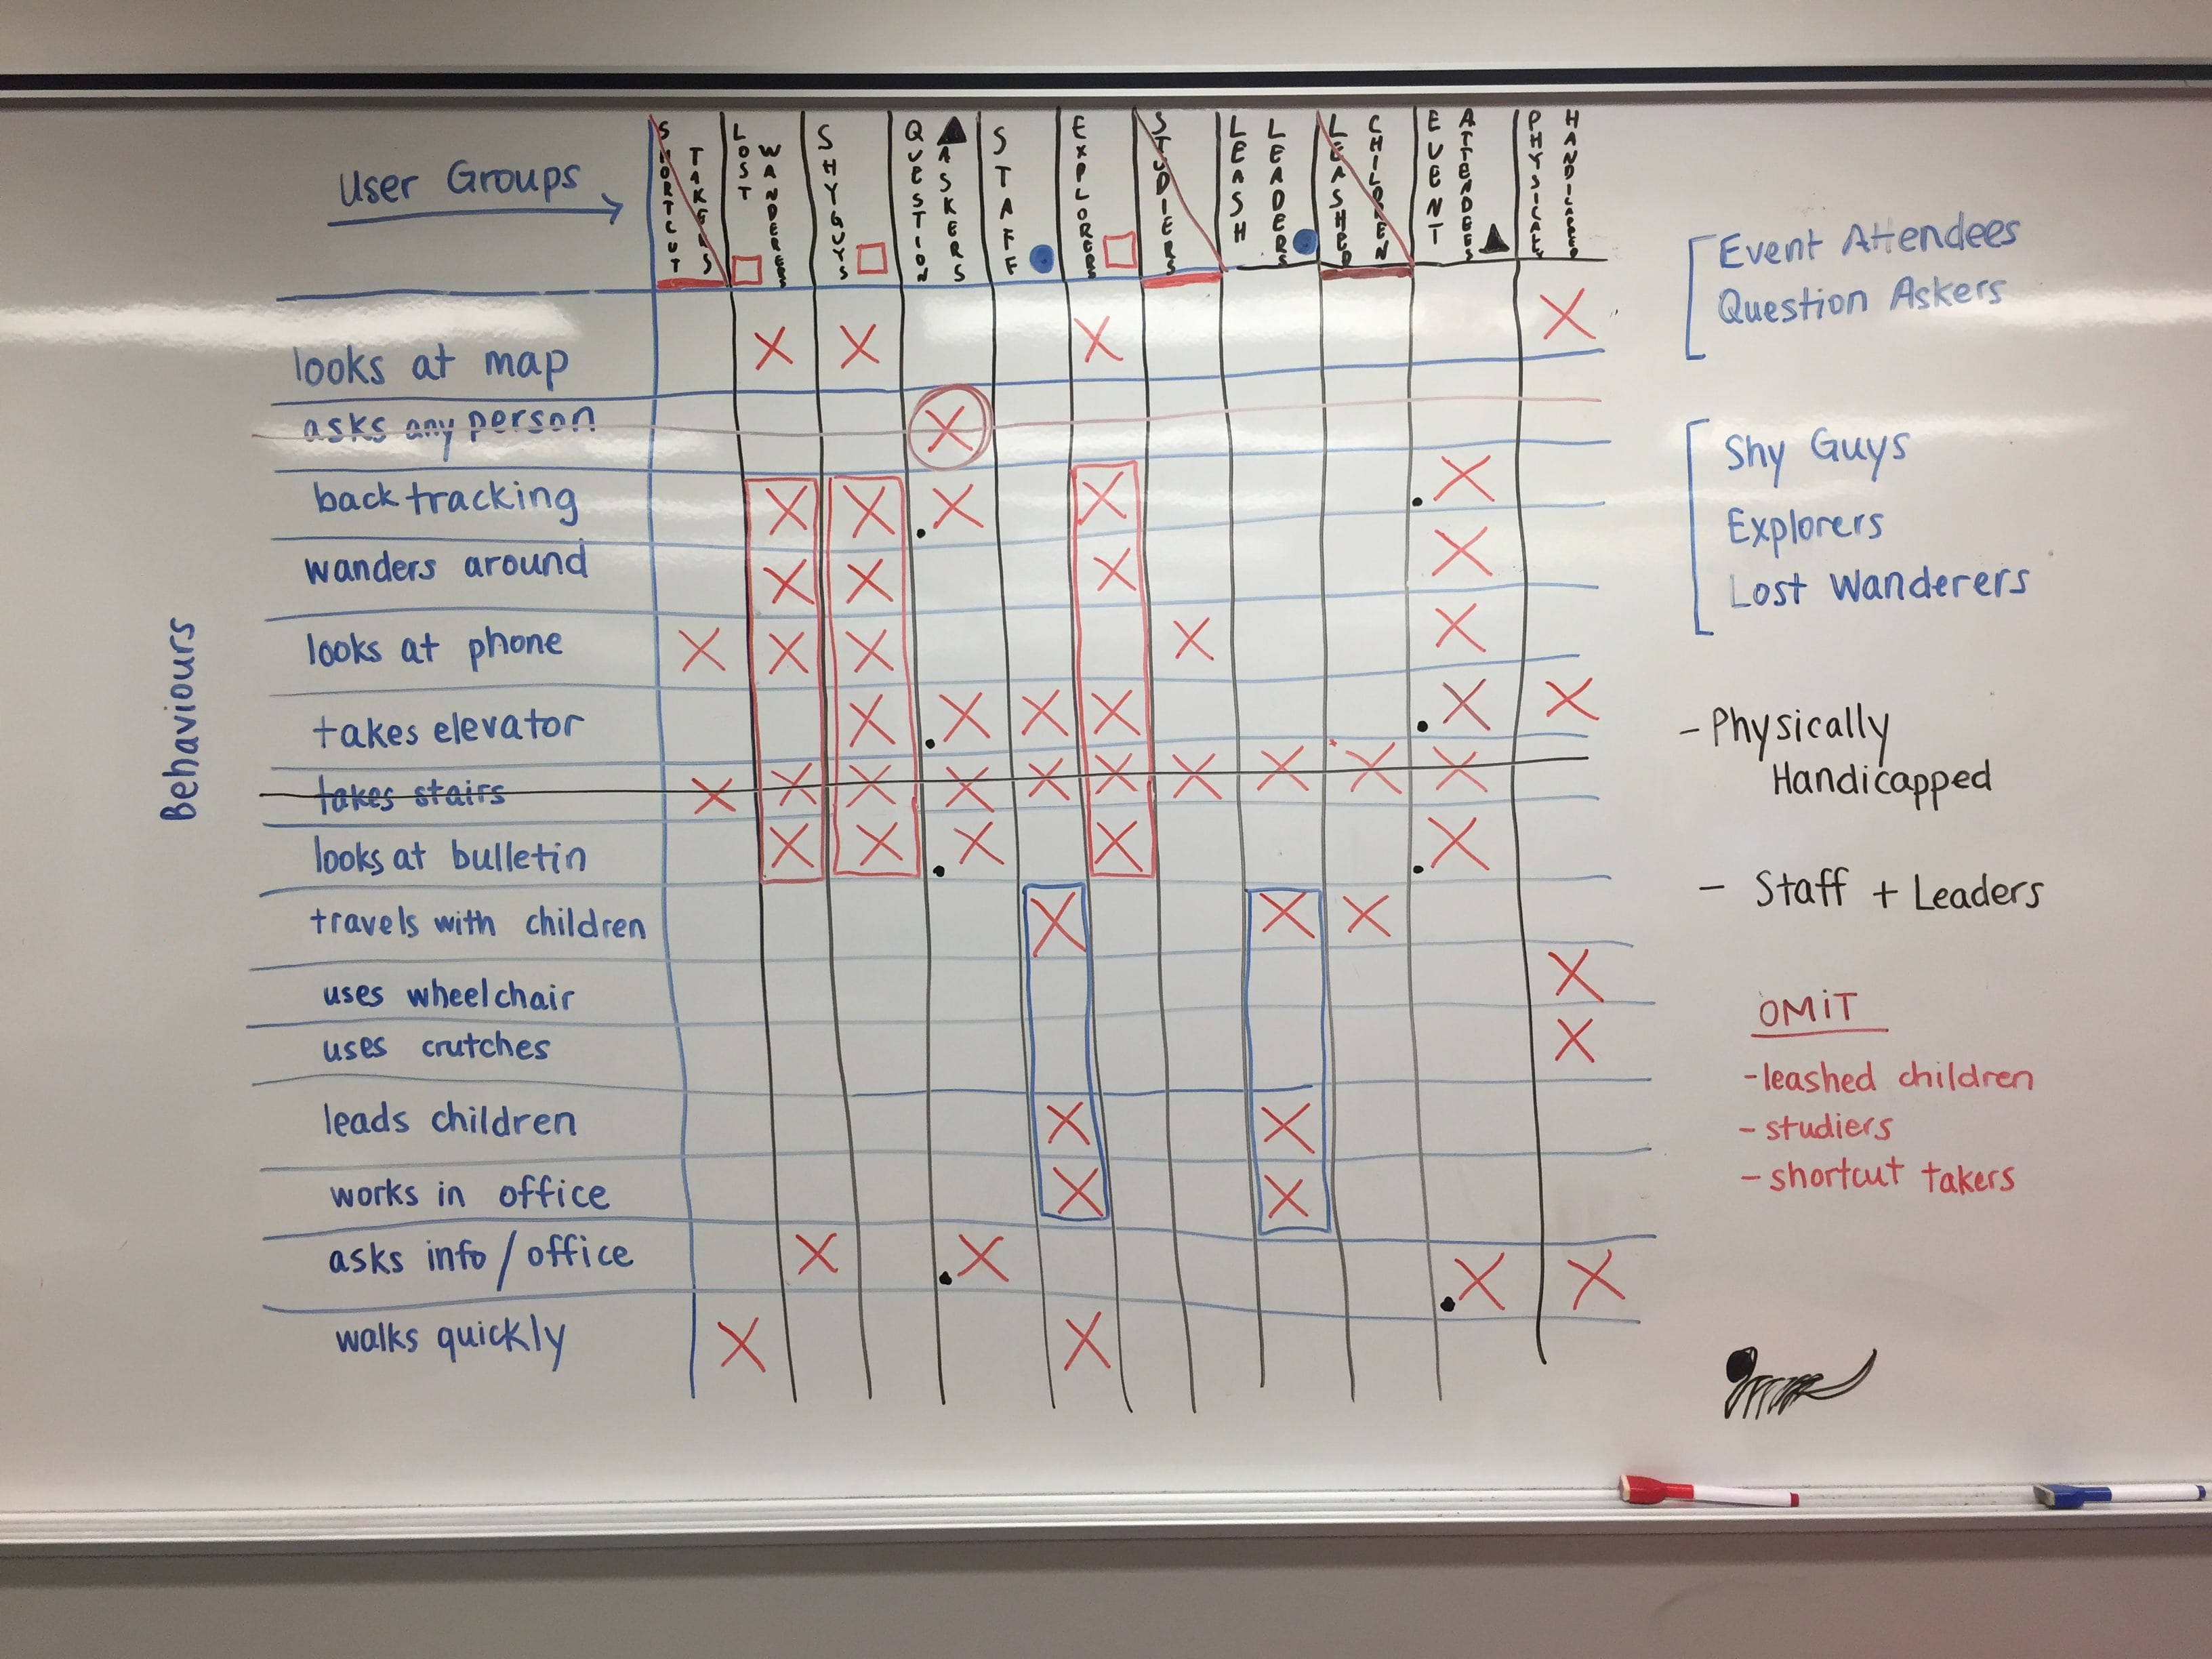 User Groups
SHORTCUT TAKERS
LOST WANDERERS
SHY GUYS
QUESTION ASKERS
STAFF
EXPLORERS
STUDIERS
LEASH LEADERS
LEASHED CHILDREN
EVENT ATTENDEES
PHYSICALLY HANDICAPPED
Behaviours
looks at map
asks any person
backtracking
wanders around
looks at phone
takes elevator
takes stairs
looks at bulletin
travels with children
uses wheelchair
uses crutches
leads children
works in office
asks info/office
walks quickly
Event Attendees
Question Askers
Shy Guys
Explorers
Lost Wanderers
- Physically
Handicapped
- Staff + Leaders
OMIT
- leashed children
- studiers
- shortcut takers